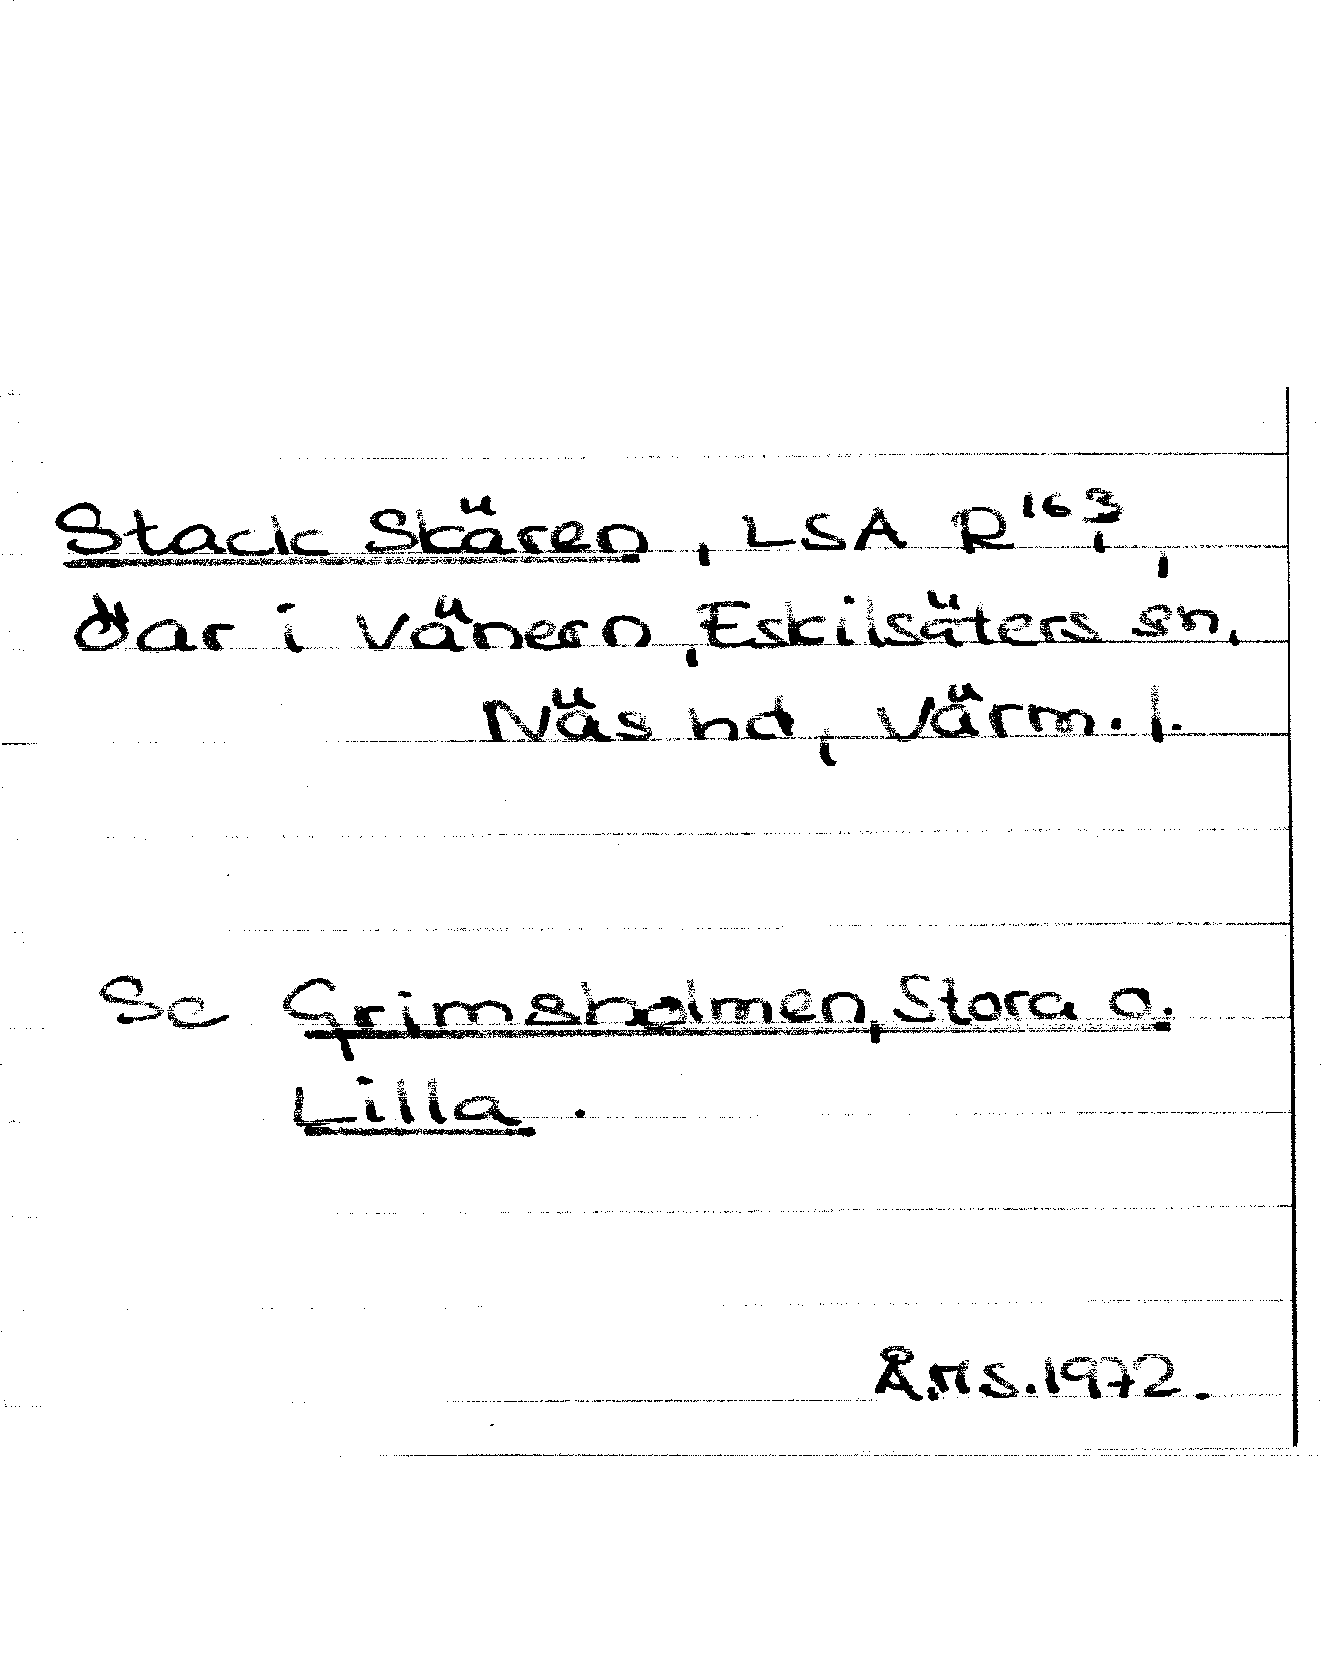 Stack Skären, LSA R¹⁶³,
öar i Vänern, Eskilsäters sn,
Näs hd, Värm. l.
Se Grimsholmen, Stora o.
Lilla.
Å.H.S. 1972.